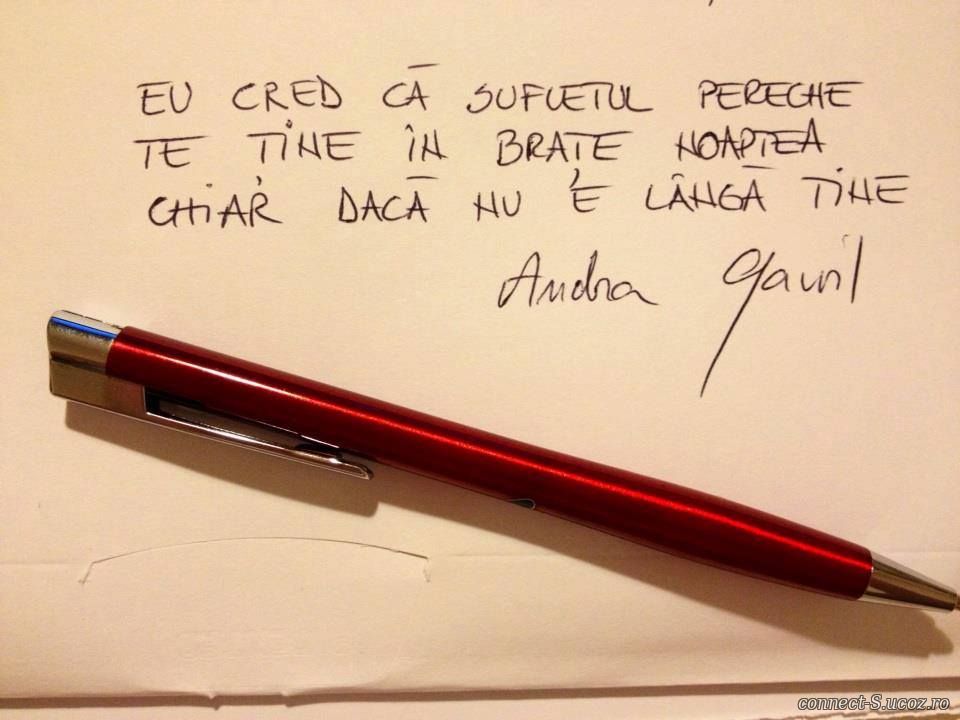 EU CRED CĂ SUFLETUL PERECHE
TE ȚINE ÎN BRAȚE NOAPTEA
CHIAR DACĂ NU E LÂNGĂ TINE
Andra Gavril
connect-S.ucoz.ro